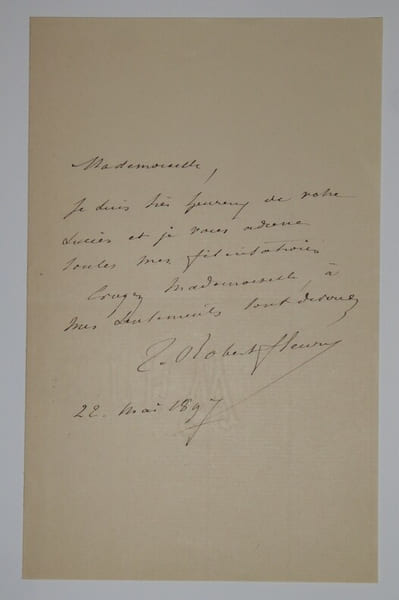 Mademoiselle,
Je suis très heureux de votre
succès et je vous adresse
toutes mes félicitations
Croyez Mademoiselle, à
mes sentiments tout dévoués
T. Robert-Fleury
22. Mai 1897